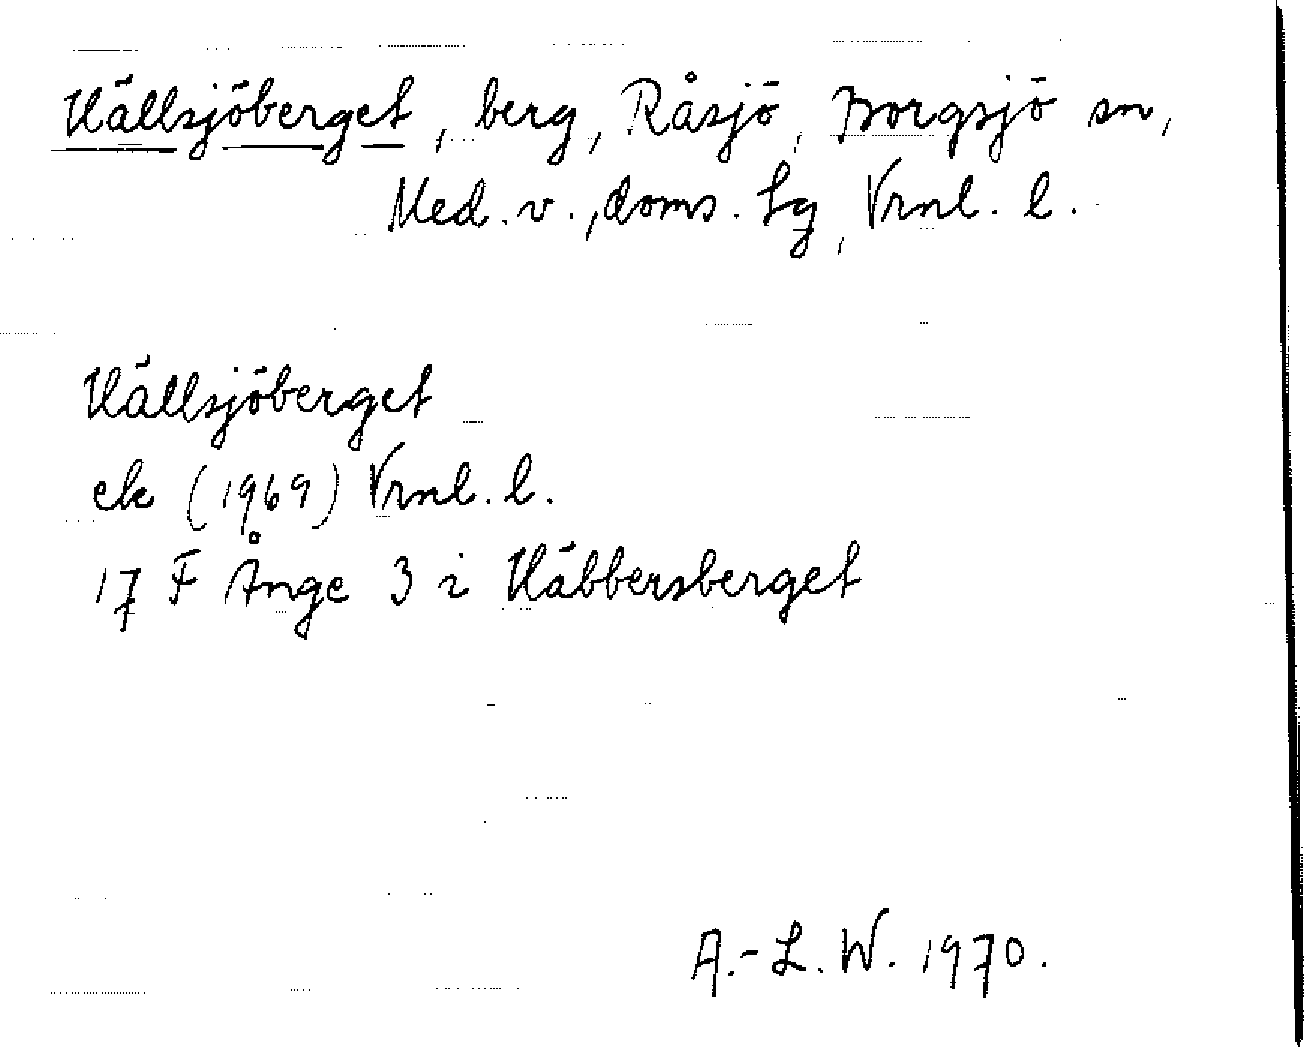 Hällsjöberget, berg, Råsjö, Borgsjö sn,
Med. v., doms. Lg, Vrnl. l.
Hällsjöberget
ek (1969) Vrnl. l.
17 F Ånge 3 i Häbbersberget
A.-L. W. 1970.